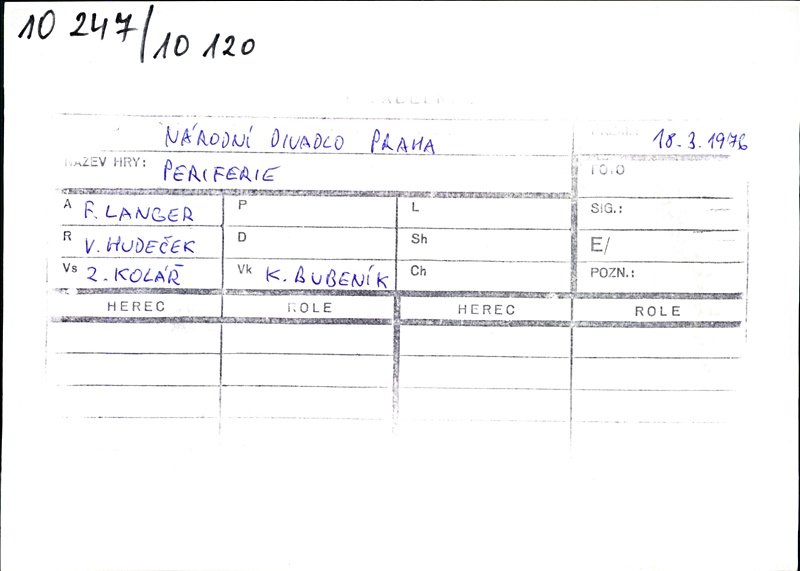 10 247/10 120
NÁRODNÍ DIVADLO PRAHA 18.3.1976
NÁZEV HRY: PERIFERIE FOTO
A F. LANGER P L SIG.:
R V. HUDEČEK D Sh E/
Vs Z. KOLÁŘ Vk K. BUBENÍK Ch POZN.:
HEREC ROLE HEREC ROLE